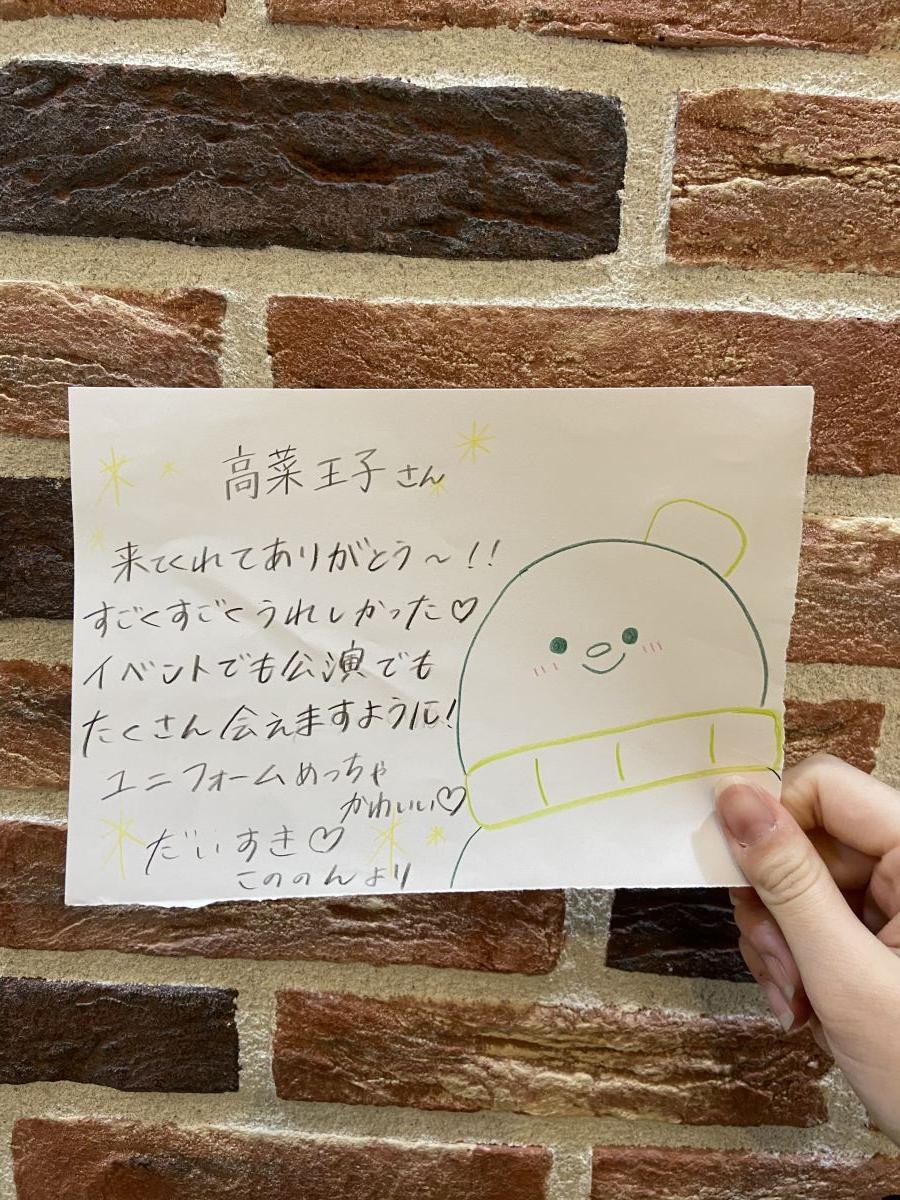 高菜王子さん
来てくれてありがとう〜!!
すごくすごくうれしかった♡
イベントでも公演でも
たくさん会えますように!
ユニフォームめっちゃ
かわいい♡
だいすき♡
こののんより